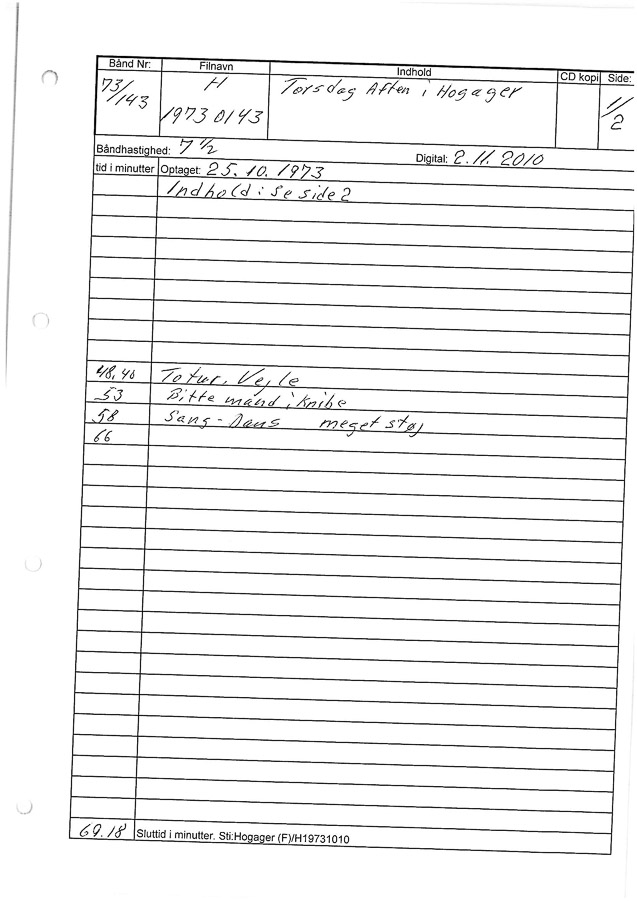 Bånd Nr: Filnavn Indhold CD kopi Side:
73/143 H 19730143 Torsdag Aften i Hogager 1/2
Båndhastighed: 7 1/2 Digital: 2.11.2010
tid i minutter Optaget: 25.10.1973
Indhold: se side 2
48,40 Totur, Vejle
53 Bitte mand i knibe
58 Sang-Dans meget støj
66
69.18 Sluttid i minutter. Sti:Hogager (F)/H19731010